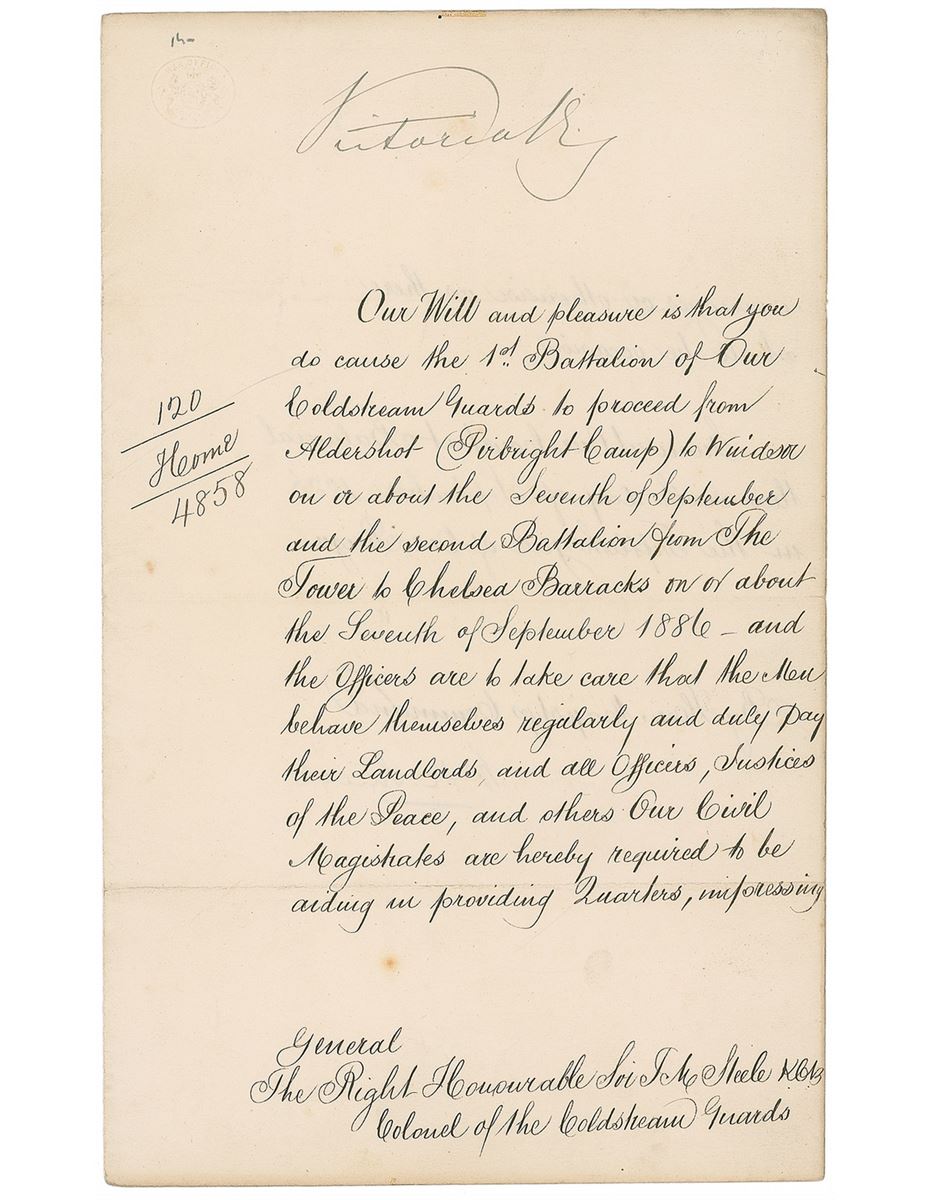 Victoria R
Our Will and pleasure is that you
do cause the 1st Battalion of Our
Coldstream Guards to proceed from
Aldershot (Pirbright Camp) to Windsor
on or about the Seventh of September
and the second Battalion from The
Tower to Chelsea Barracks on or about
the Seventh of September 1886 – and
the Officers are to take care that the Men
behave themselves regularly and duly Pay
their Landlords, and all Officers, Justices
of the Peace, and others Our Civil
Magistrates are hereby required to be
aiding in providing Quarters, impressing
120
Home
4858
General
The Right Honourable Sir T M Steele KCB
Colonel of the Coldstream Guards